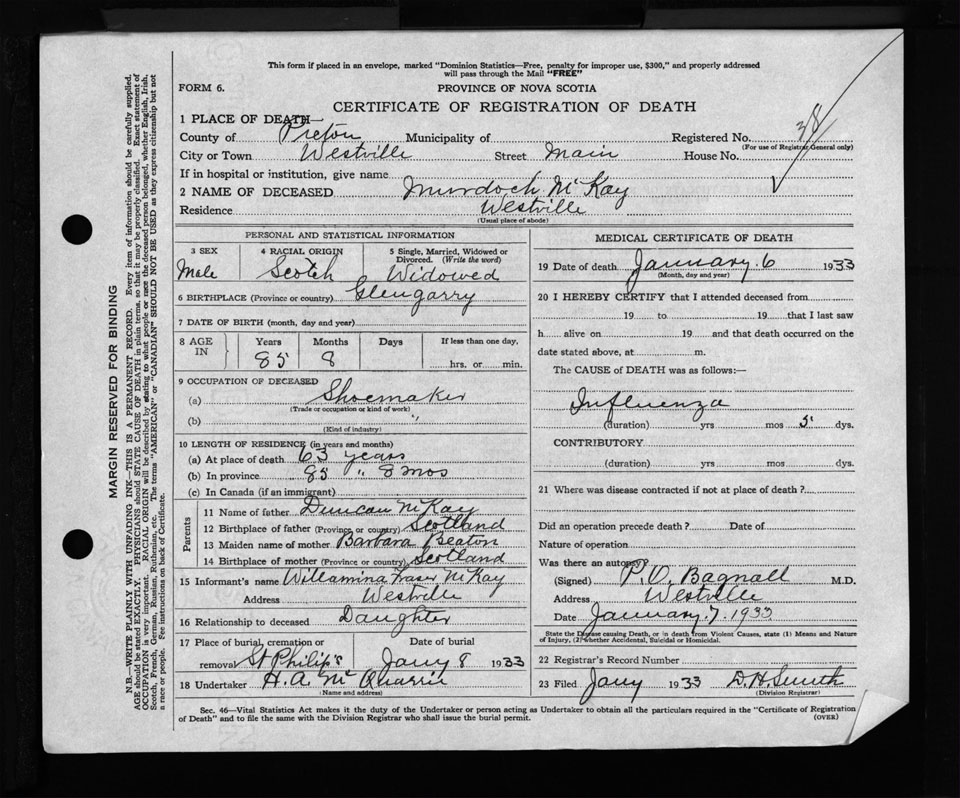 This form if placed in an envelope, marked "Dominion Statistics—Free, penalty for improper use, $300," and properly addressed
will pass through the Mail "FREE"
FORM 6.
PROVINCE OF NOVA SCOTIA
CERTIFICATE OF REGISTRATION OF DEATH
1 PLACE OF DEATH—
County of Pictou Municipality of Registered No. 38
(For use of Registrar General only)
City or Town Westville Street Main House No.
If in hospital or institution, give name
2 NAME OF DECEASED Murdoch McKay
Residence Westville
(Usual place of abode)
PERSONAL AND STATISTICAL INFORMATION
3 SEX 4 RACIAL ORIGIN 5 Single, Married, Widowed or Divorced. (Write the word)
Male Scotch Widowed
6 BIRTHPLACE (Province or country) Glengarry
7 DATE OF BIRTH (month, day and year)
8 AGE IN Years Months Days If less than one day,
85 8 hrs. or min.
9 OCCUPATION OF DECEASED
(a) Shoemaker
(Trade or occupation or kind of work)
(b) "
(Kind of industry)
10 LENGTH OF RESIDENCE (in years and months)
(a) At place of death 63 years
(b) In province 85 " 8 mos
(c) In Canada (if an immigrant)
Parents
11 Name of father Duncan McKay
12 Birthplace of father (Province or country) Scotland
13 Maiden name of mother Barbara Beaton
14 Birthplace of mother (Province or country) Scotland
15 Informant's name Willamina Fraser McKay
Address Westville
16 Relationship to deceased Daughter
17 Place of burial, cremation or removal St Philip's Date of burial Jany 8 1933
18 Undertaker H. A. McQuarrie
(Name and address)
MEDICAL CERTIFICATE OF DEATH
19 Date of death January 6 1933
(Month, day and year)
20 I HEREBY CERTIFY that I attended deceased from
19 to 19 that I last saw
h alive on 19 and that death occurred on the
date stated above, at m.
The CAUSE of DEATH was as follows:—
Influenza
(duration) yrs mos 5 dys.
CONTRIBUTORY
(duration) yrs mos. dys.
21 Where was disease contracted if not at place of death?
Did an operation precede death? Date of
Nature of operation
Was there an autopsy?
(Signed) P. O. Bagnall M.D.
Address Westville
Date January 7. 1933
State the Disease causing Death, or in death from Violent Causes, state (1) Means and Nature
of Injury, (2) whether Accidental, Suicidal or Homicidal.
22 Registrar's Record Number
23 Filed Jany 1933 D. H. Smith
(Division Registrar)
Sec. 46—Vital Statistics Act makes it the duty of the Undertaker or person acting as Undertaker to obtain all the particulars required in the "Certificate of Registration
of Death" and to file the same with the Division Registrar who shall issue the burial permit.
(OVER)
MARGIN RESERVED FOR BINDING
N.B.—WRITE PLAINLY WITH UNFADING INK—THIS IS A PERMANENT RECORD. Every item of information should be carefully supplied.
AGE should be stated EXACTLY. PHYSICIANS should STATE CAUSE OF DEATH in plain terms, so that it may be properly classified. Exact statement of
OCCUPATION is very important. RACIAL ORIGIN will be described by stating to what people or race the deceased person belonged, whether English, Irish,
Scotch, French, German, Russian, Ruthenian, etc. The terms "AMERICAN" or "CANADIAN" SHOULD NOT BE USED as they express citizenship but not
a race or people. Fee instructions on back of Certificate.